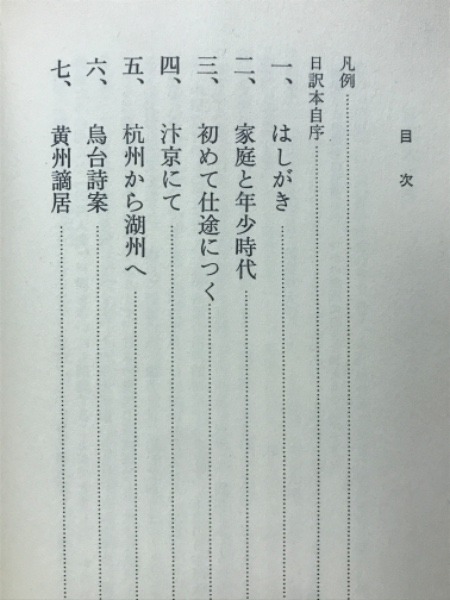 目次
凡例
日訳本自序
一、はしがき
二、家庭と年少時代
三、初めて仕途につく
四、汴京にて
五、杭州から湖州へ
六、烏台詩案
七、黄州謫居